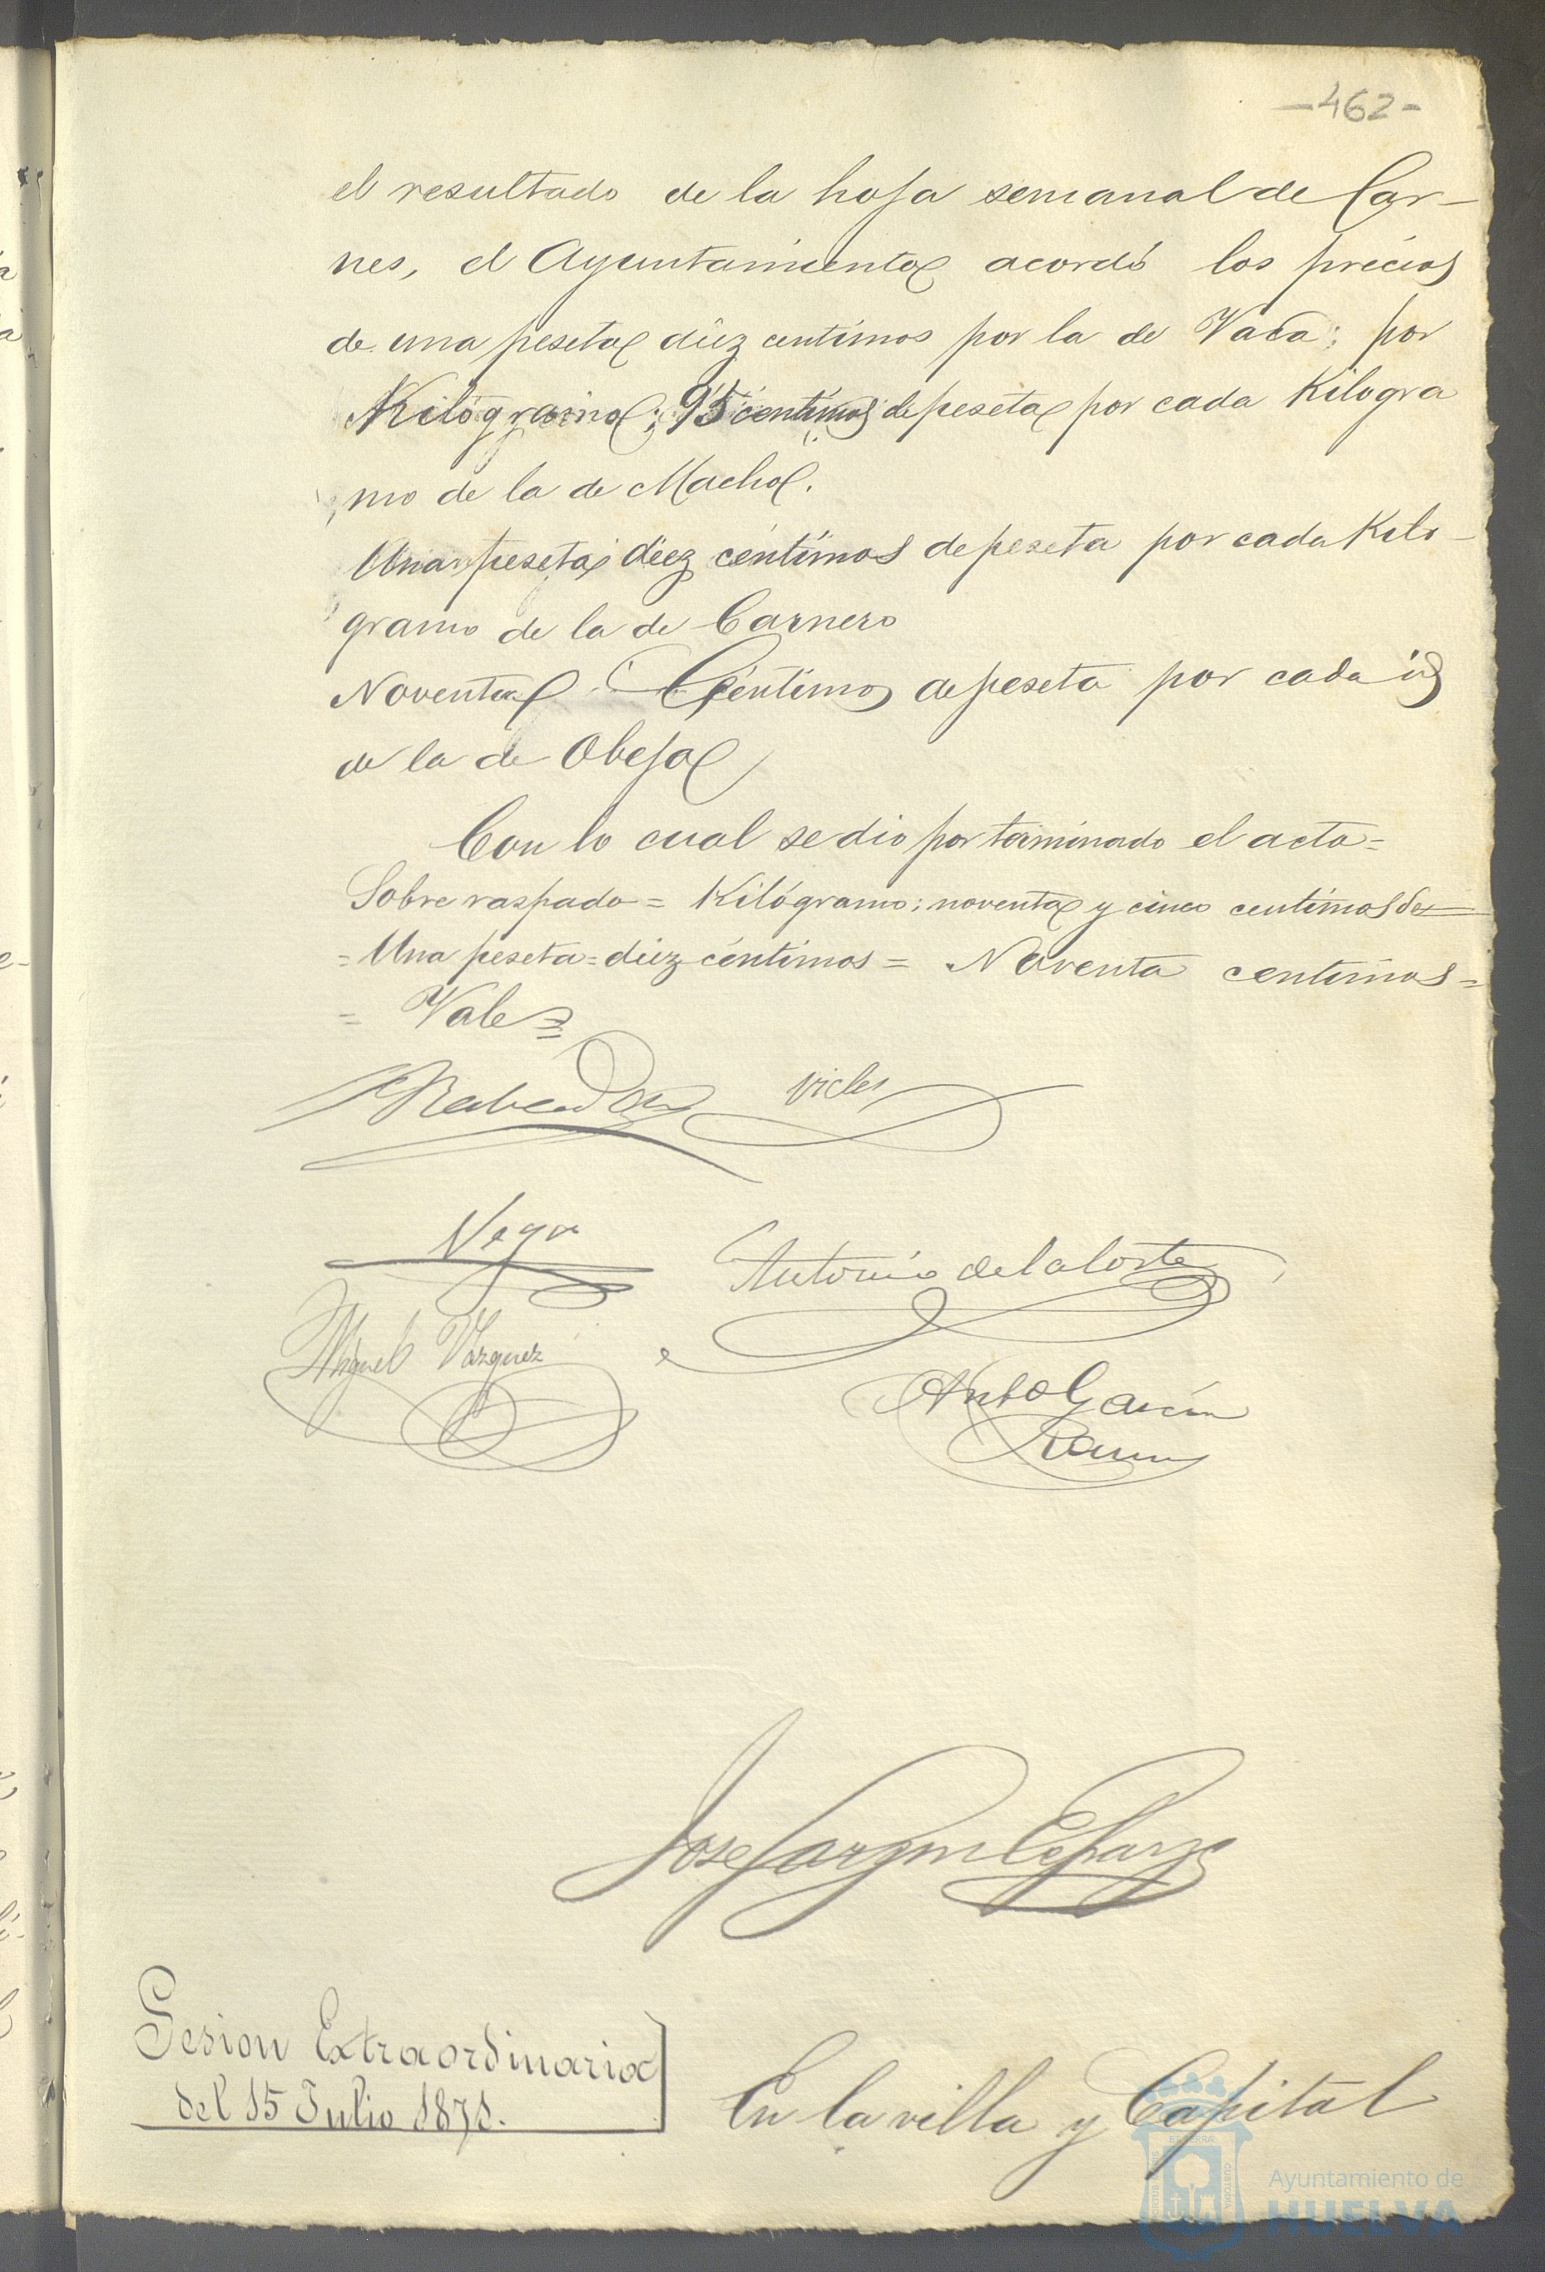 -462-
el resultado de la hoja semanal de Car-
nes, el Ayuntamiento acordó los precios
de una peseta diez centimos por la de Vaca; por
Kilógramo; 95 centimos de peseta por cada Kilogra
mo de la de Macho.
Una peseta diez centimos de peseta por cada Kilo-
gramo de la de Carnero
Noventa Centimos de peseta por cada id
de la de Obeja
Con lo cual se dio por terminado el acto=
Sobre raspado = Kilógramo: noventa y cinco centimos de=
= Una peseta = diez céntimos = Noventa centimos =
= Vale=
Rabadan
Vega
Antonio de la Corte
Miguel Vazquez
Anto Garcia
Ramos
Jose
Sesion Extraordinaria
del 15 Julio 1871.
En la villa y Capital
Ayuntamiento de
HUELVA